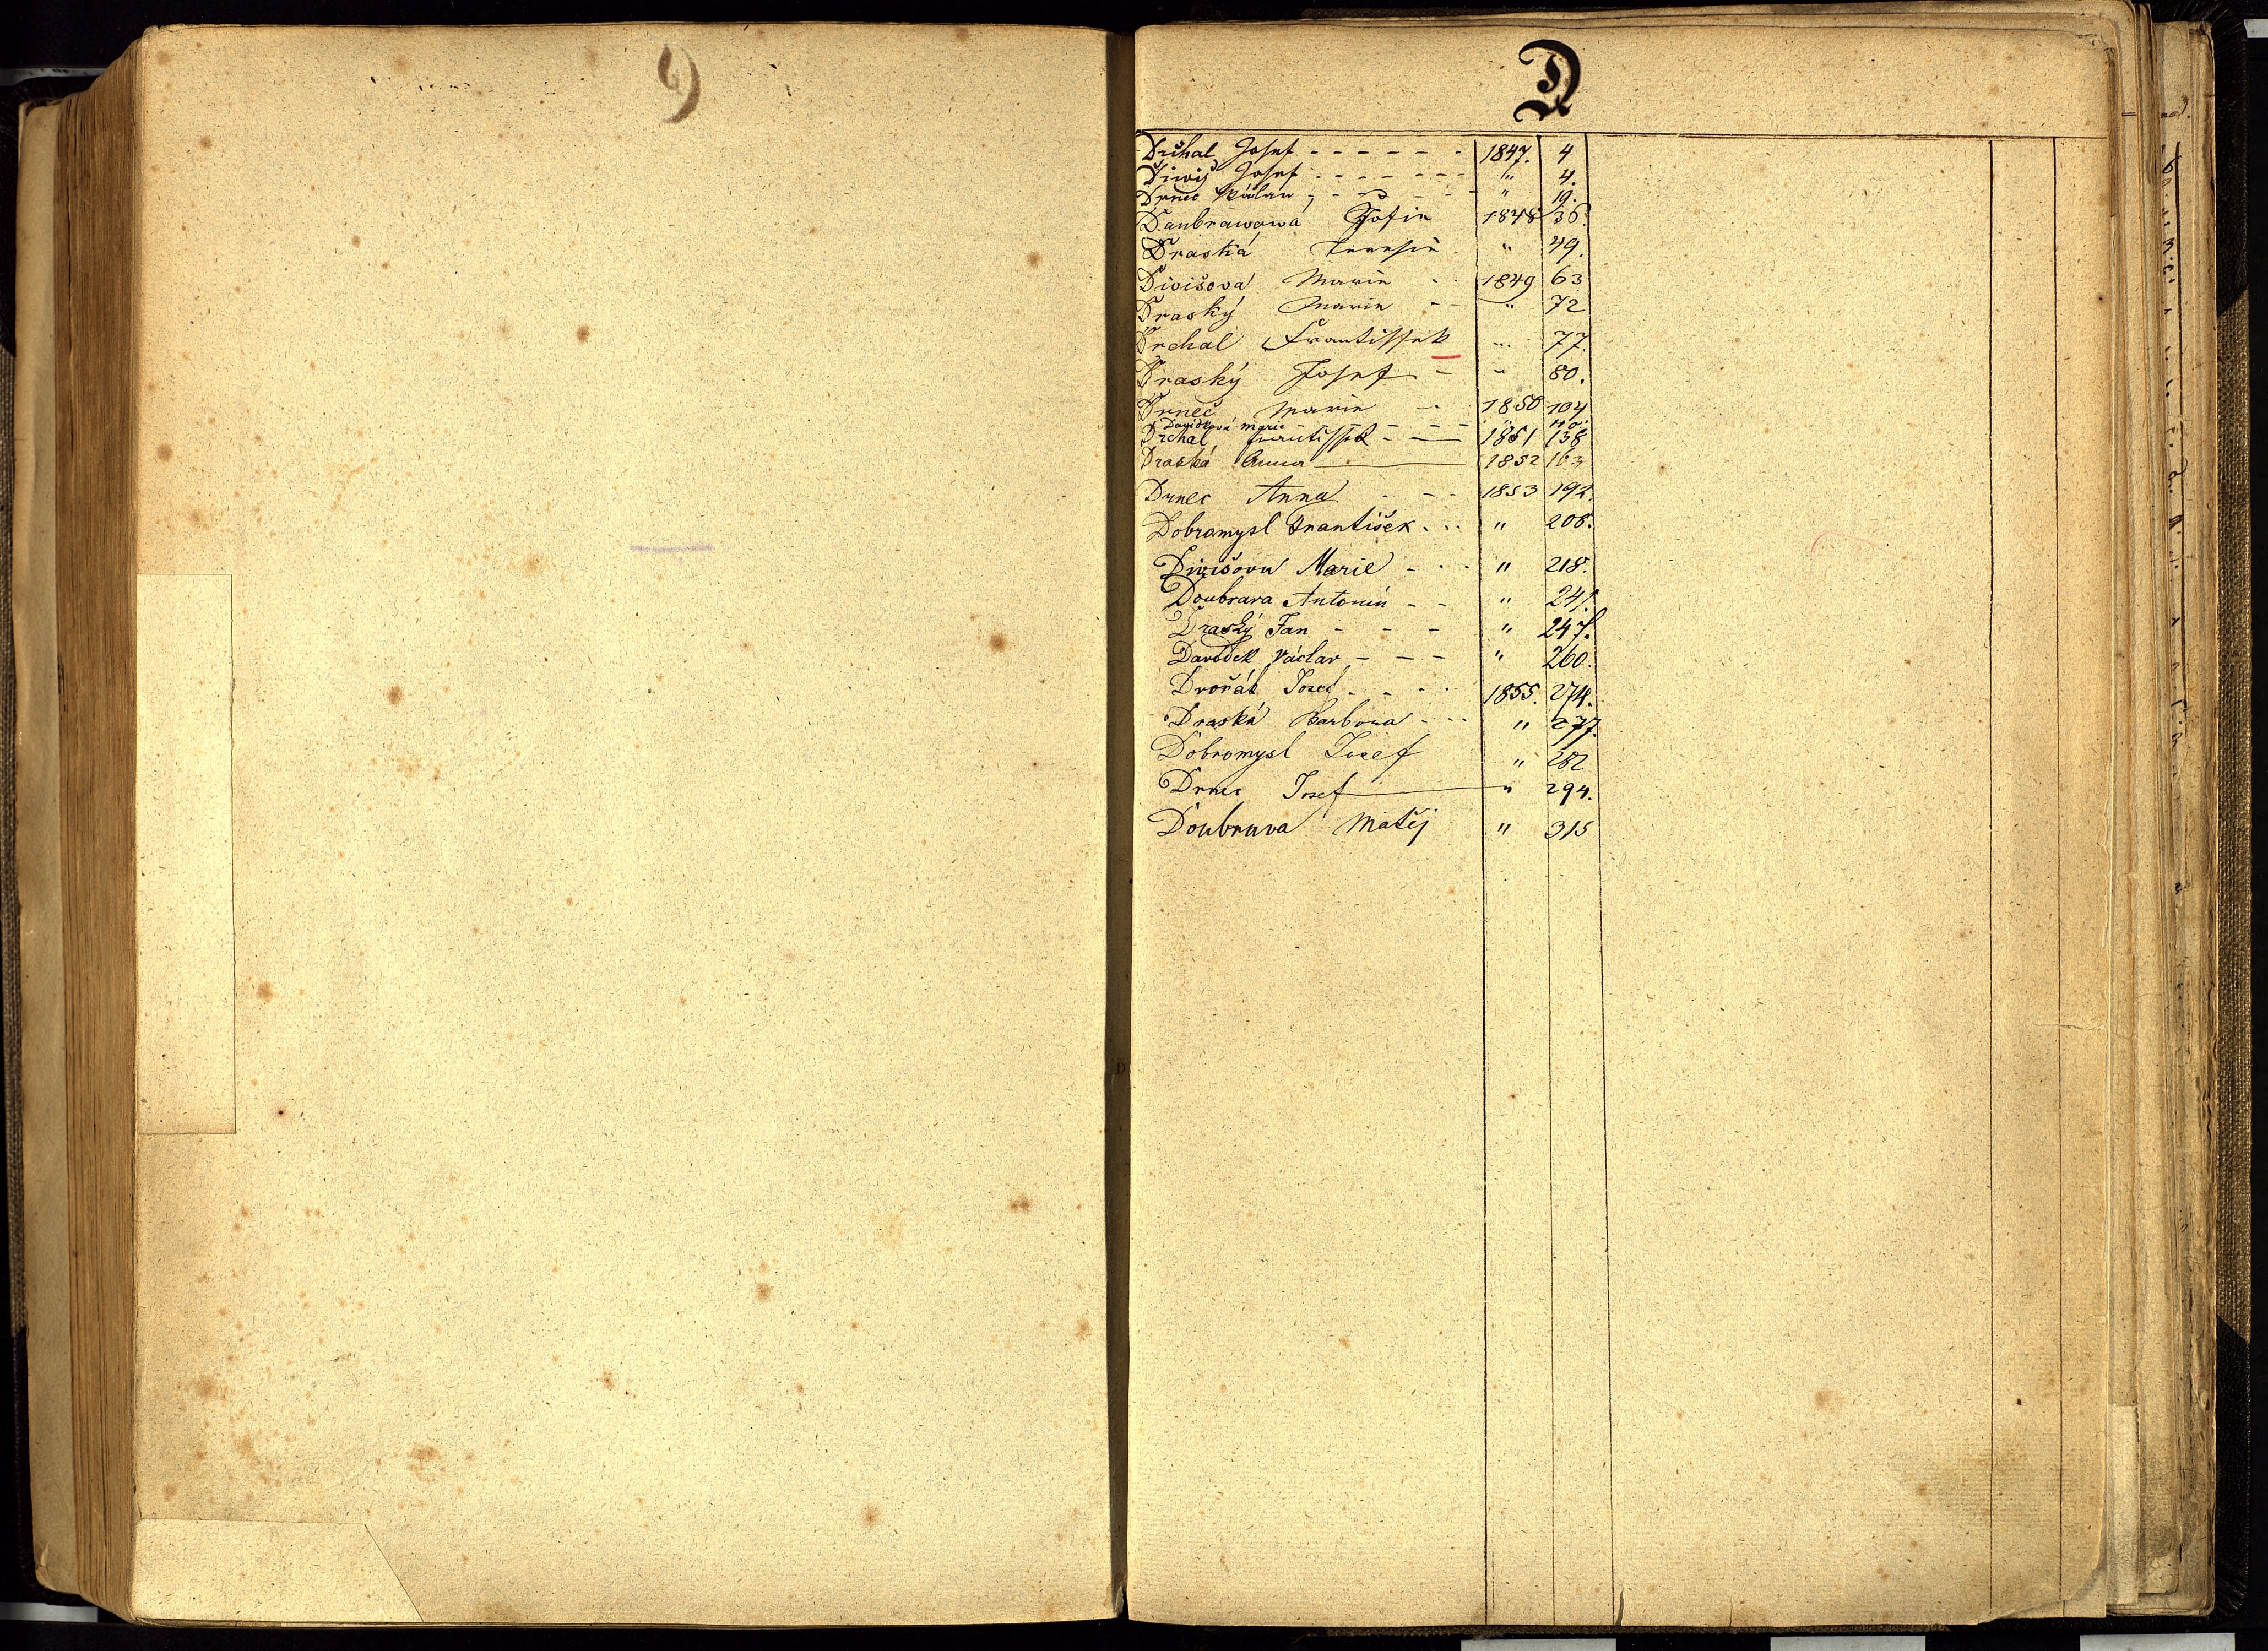 D
Drchal Josef - - - - - - 1847. 4
Diwiš Josef - - - - - - - " 4.
Drnec Václaw - - - - - " 19.
Daubrawowá Žofie 1848 36.
Draská Teresie " 49.
Divišová Marie - - 1849 63
Draský Marie - - " 72
Drchal Frantissek " 77.
Draský Josef - " 80.
Drnec Marie - 1850 104
Davídková Marie - - - - - "
Drchal Frantissek - — 1851 138
Draská Anna — 1852 163
Drnec Anna - - - 1853 192.
Dobromysl František - - " 208.
Divišova Marie - - - " 218.
Doubrava Antonín - - " 241.
Draský Jan - - - " 247.
Davídek Václav - - - " 260.
Dvořák Josef - - - - 1855. 274.
Draská Barbora - - - " 277.
Dobromysl Josef " 282
Drnec Josef — " 294.
Doubrava Matěj " 315